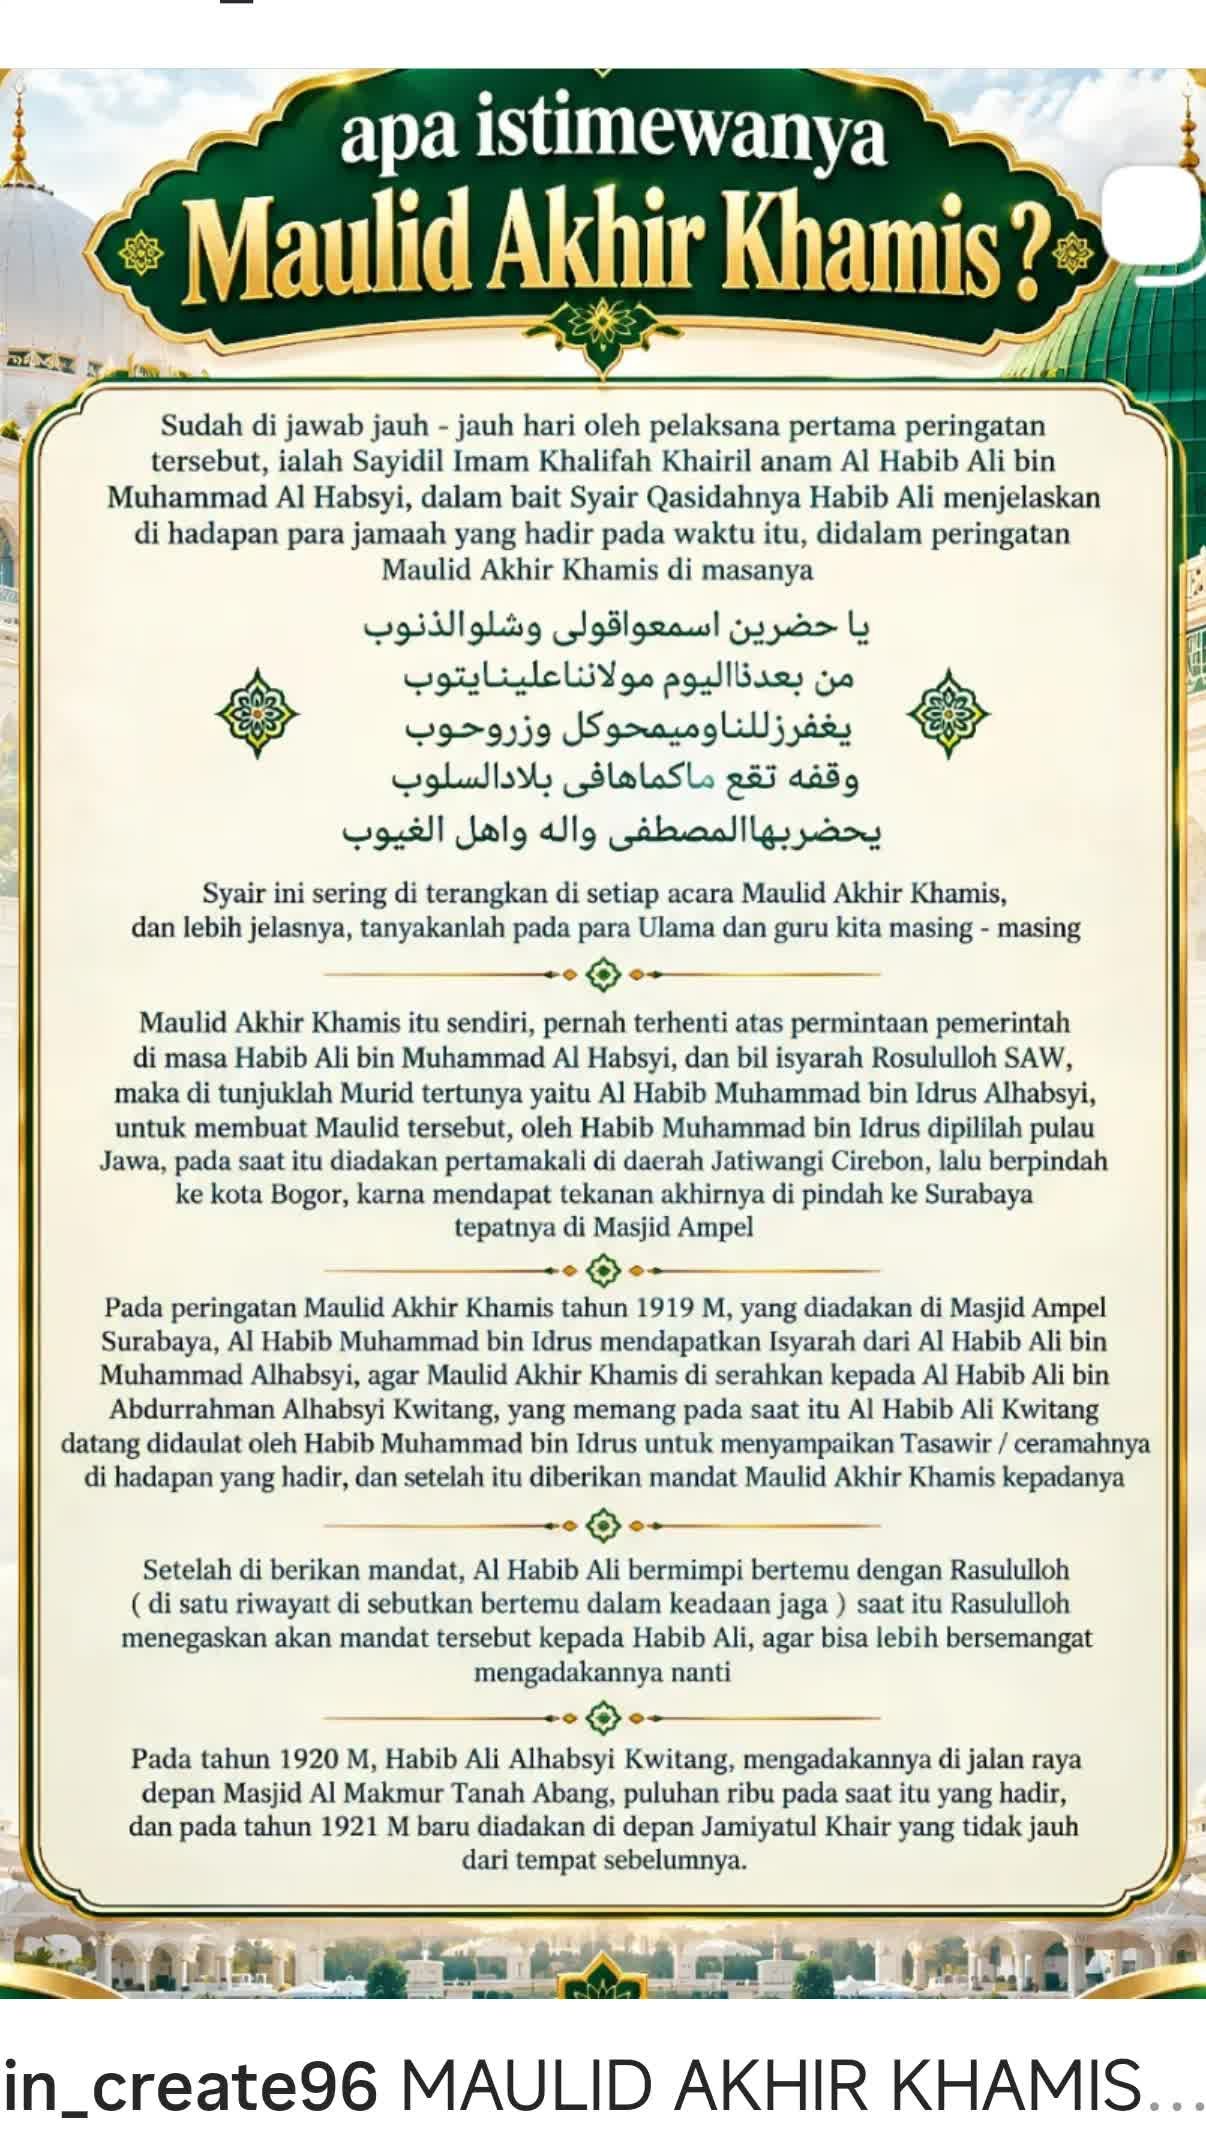 apa istimewanya
Maulid Akhir Khamis?
Sudah di jawab jauh - jauh hari oleh pelaksana pertama peringatan
tersebut, ialah Sayidil Imam Khalifah Khairil anam Al Habib Ali bin
Muhammad Al Habsyi, dalam bait Syair Qasidahnya Habib Ali menjelaskan
di hadapan para jamaah yang hadir pada waktu itu, didalam peringatan
Maulid Akhir Khamis di masanya
يا حضرين اسمعواقولى وشلوالذنوب
من بعدذااليوم مولانناعلينايتوب
يغفرزللناوميمحوكل وزروحوب
وقفه تقع ماكماهافى بلادالسلوب
يحضربهاالمصطفى واله واهل الغيوب
Syair ini sering di terangkan di setiap acara Maulid Akhir Khamis,
dan lebih jelasnya, tanyakanlah pada para Ulama dan guru kita masing - masing
Maulid Akhir Khamis itu sendiri, pernah terhenti atas permintaan pemerintah
di masa Habib Ali bin Muhammad Al Habsyi, dan bil isyarah Rosululloh SAW,
maka di tunjuklah Murid tertunya yaitu Al Habib Muhammad bin Idrus Alhabsyi,
untuk membuat Maulid tersebut, oleh Habib Muhammad bin Idrus dipililah pulau
Jawa, pada saat itu diadakan pertamakali di daerah Jatiwangi Cirebon, lalu berpindah
ke kota Bogor, karna mendapat tekanan akhirnya di pindah ke Surabaya
tepatnya di Masjid Ampel
Pada peringatan Maulid Akhir Khamis tahun 1919 M, yang diadakan di Masjid Ampel
Surabaya, Al Habib Muhammad bin Idrus mendapatkan Isyarah dari Al Habib Ali bin
Muhammad Alhabsyi, agar Maulid Akhir Khamis di serahkan kepada Al Habib Ali bin
Abdurrahman Alhabsyi Kwitang, yang memang pada saat itu Al Habib Ali Kwitang
datang didaulat oleh Habib Muhammad bin Idrus untuk menyampaikan Tasawir / ceramahnya
di hadapan yang hadir, dan setelah itu diberikan mandat Maulid Akhir Khamis kepadanya
Setelah di berikan mandat, Al Habib Ali bermimpi bertemu dengan Rasululloh
( di satu riwayatt di sebutkan bertemu dalam keadaan jaga ) saat itu Rasululloh
menegaskan akan mandat tersebut kepada Habib Ali, agar bisa lebih bersemangat
mengadakannya nanti
Pada tahun 1920 M, Habib Ali Alhabsyi Kwitang, mengadakannya di jalan raya
depan Masjid Al Makmur Tanah Abang, puluhan ribu pada saat itu yang hadir,
dan pada tahun 1921 M baru diadakan di depan Jamiyatul Khair yang tidak jauh
dari tempat sebelumnya.
in_create96 MAULID AKHIR KHAMIS...